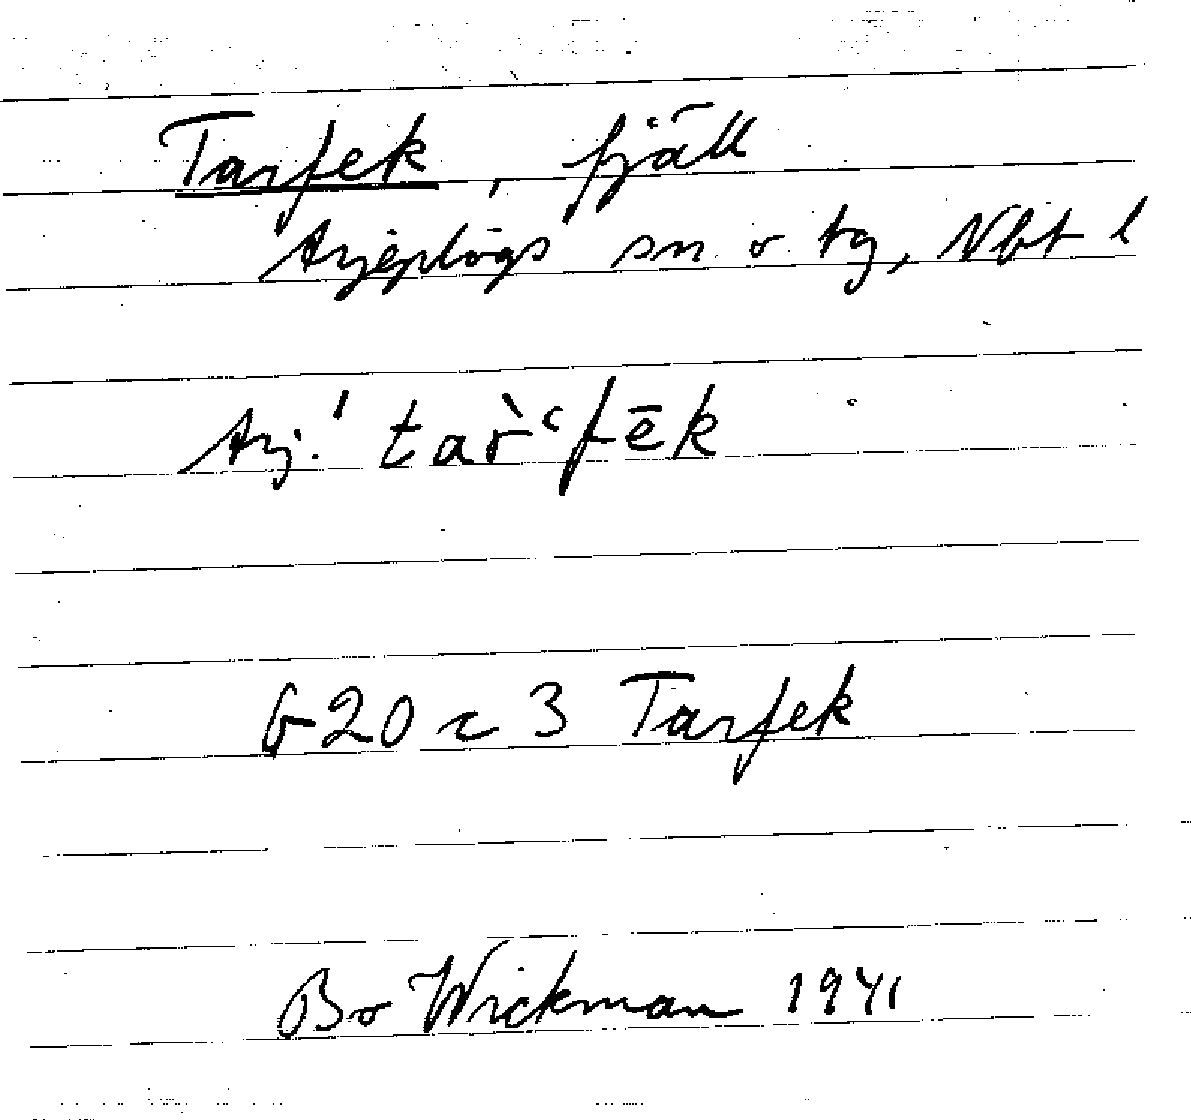 Tarfek, fjäll
Arjeplogs sn o tg, Nbt l
Arj. ' tar̀ʿfēk
G 20 c 3 Tarfek
Bo Wickman 1941